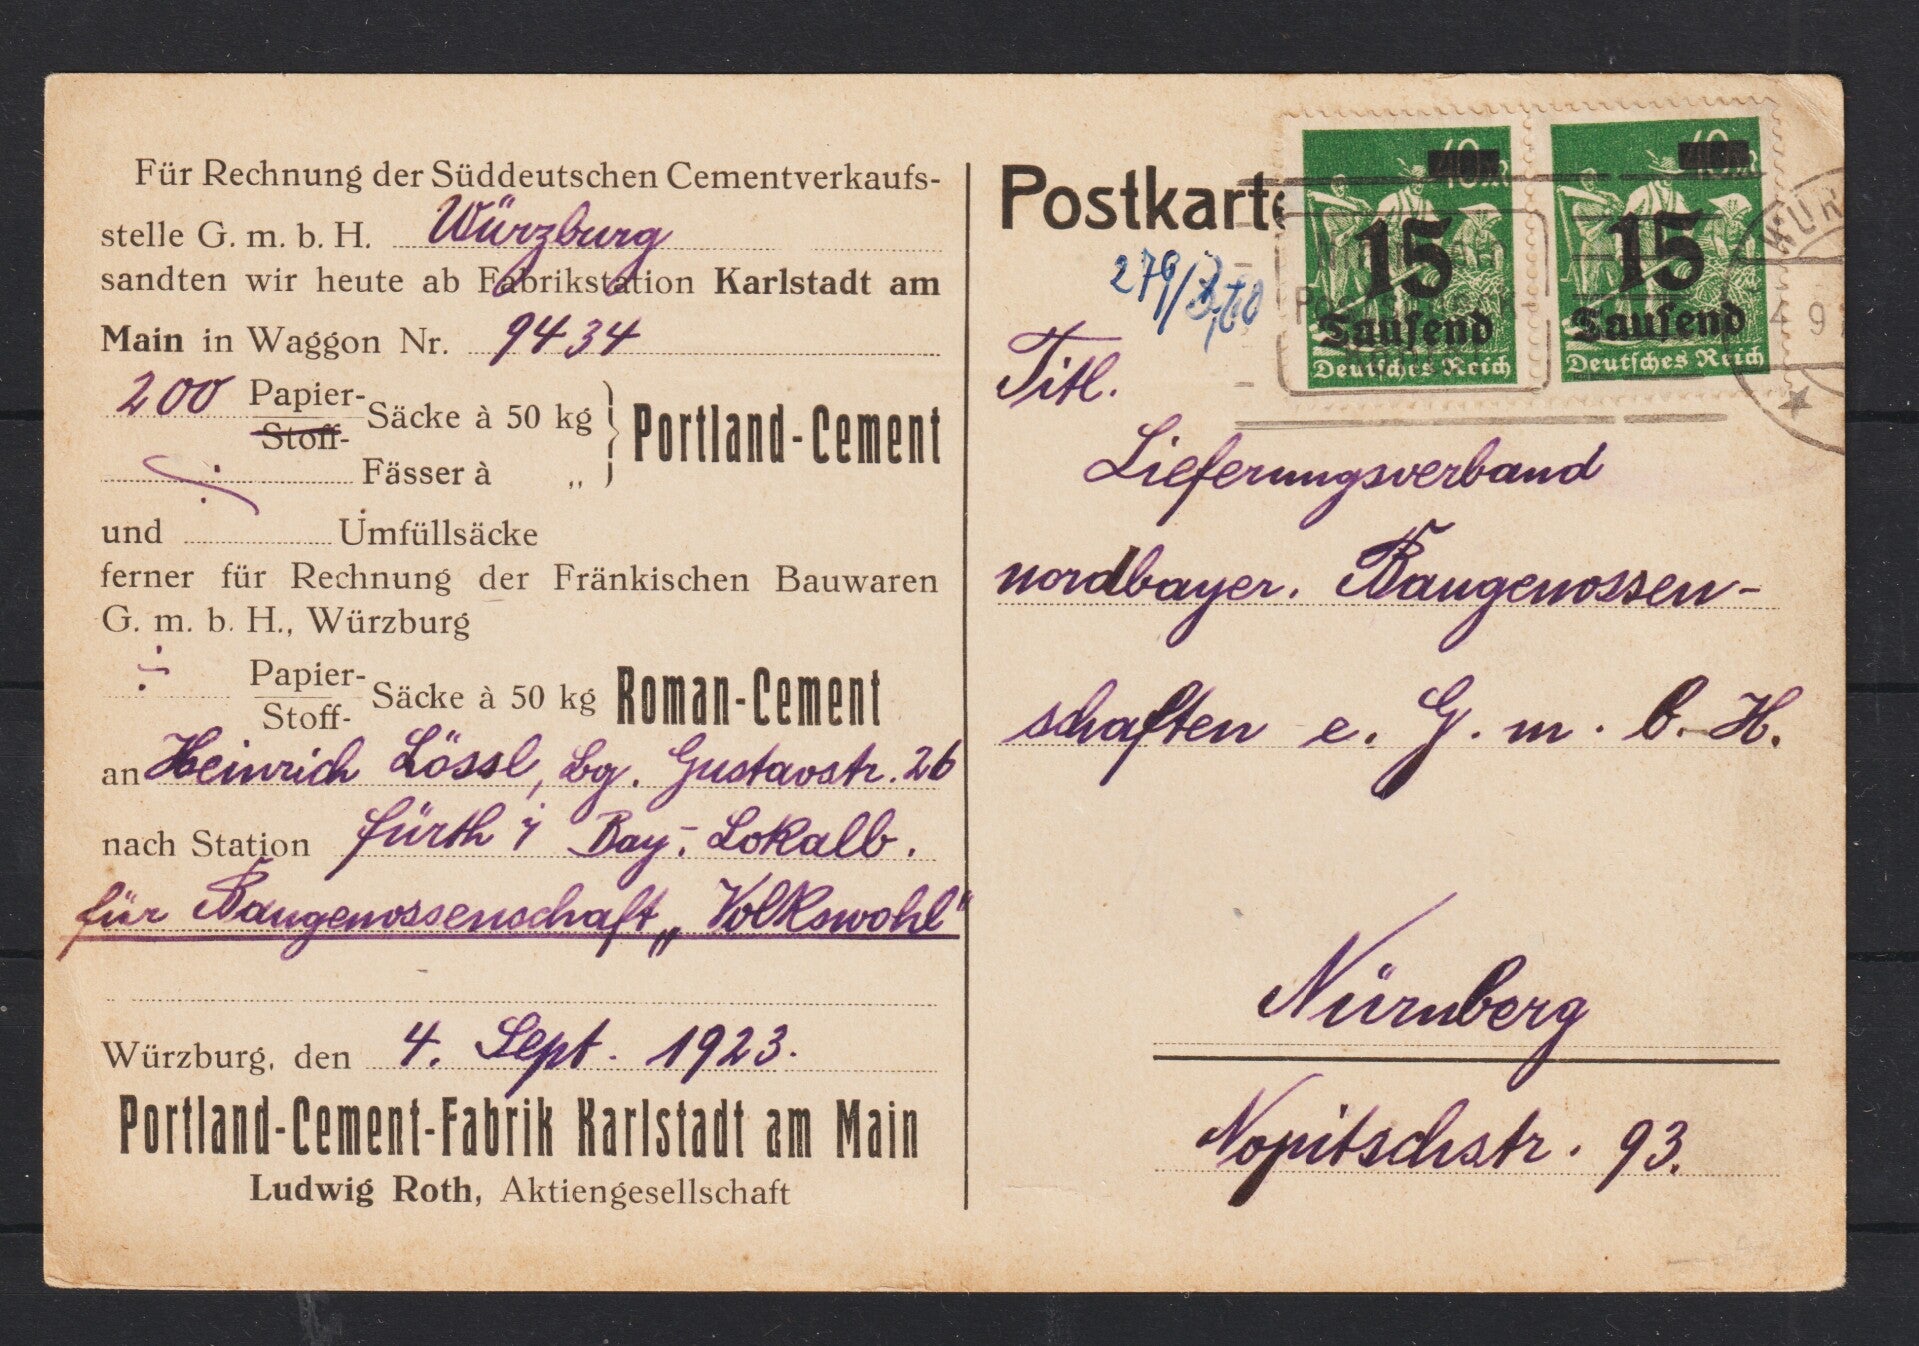 Für Rechnung der Süddeutschen Cementverkaufs-
stelle G. m. b. H. Würzburg
sandten wir heute ab Fabrikstation Karlstadt am
Main in Waggon Nr. 9434
200 Papier-
Stoff-
Säcke à 50 kg
Fässer à „
Portland-Cement
und Umfüllsäcke
ferner für Rechnung der Fränkischen Bauwaren
G. m. b. H., Würzburg
Papier-
Stoff-
Säcke à 50 kg Roman-Cement
an Heinrich Lössl, Lg. Gustavstr. 26
nach Station Fürth i Bay. Lokalb.
für Baugenossenschaft „Volkswohl"
Würzburg, den 4. Sept. 1923.
Portland-Cement-Fabrik Karlstadt am Main
Ludwig Roth, Aktiengesellschaft
Postkarte
279/
Titl.
Lieferungsverband
nordbayer. Baugenossen-
schaften e. G. m. b. H.
Nürnberg
Nopitschstr. 93.
40
15
Tausend
Deutsches Reich
40
15
Tausend
Deutsches Reich
WÜR
4 9